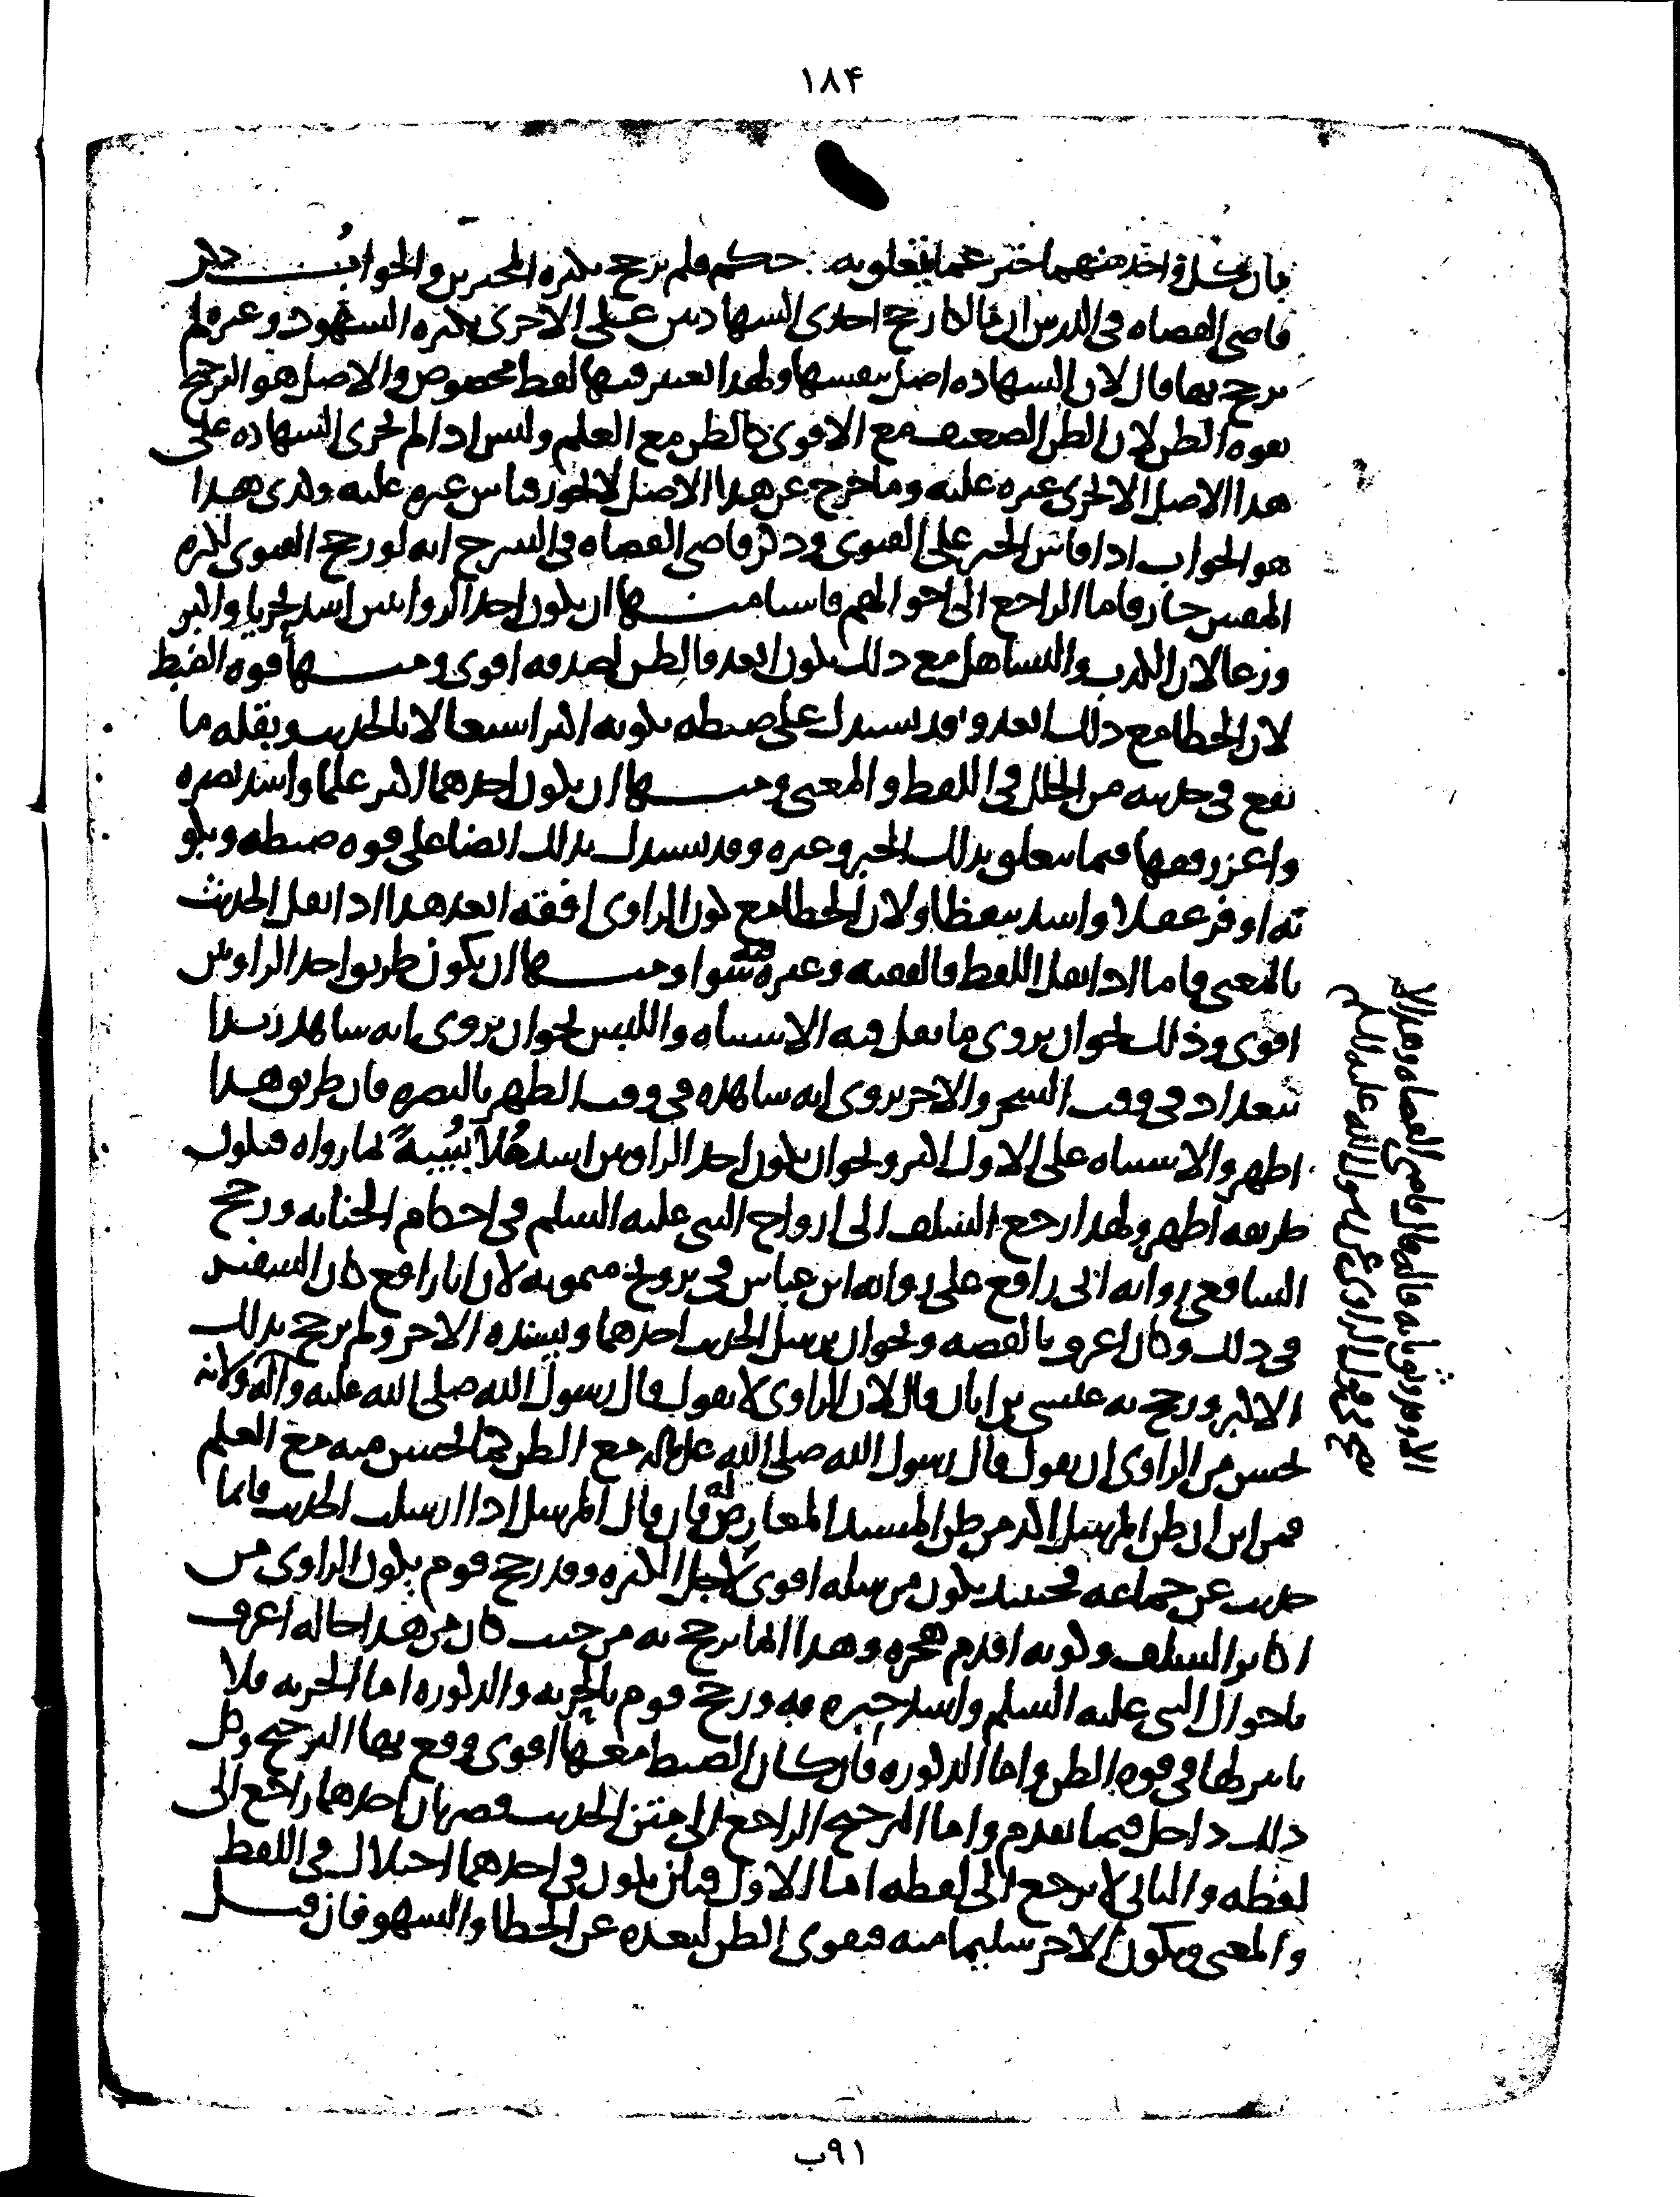 ١٨۴
بان كل واحد منهما خبر عما يتعلق به حكم فلم يرجح بكثره المخبرين والجواب ذكر
قاضى القضاه فى الدرس ان مالكا رجح احدى الشهادتين على الاخرى بكثره الشهود وغيره لم
يرجح بها قال لان الشهاده اصل بنفسها ولهذا اعتبر فيها لفظ مخصوص والاصل هو الترجيح
بقوه الظن لان الظن الضعيف مع الاقوى كالظن مع العلم وليس اذا لم تجرى الشهاده على
هذا الاصل الا لجرى غيره عليه وما خرج عن هذا الاصل لا يجوز قياس غيره عليه وكذى هذا
هو الجواب اذا قاس الخبر على الفتوى وذكر قاضى القضاه فى الشرح انه لو رجح الفتوى لكثره
المفتين جاز فاما الراجع الى احوالهم فاشيا منها ان يكون احد الراويين اشد تحريا واكثر
ورعا لان الكذب والتساهل مع ذلك يكون ابعد فالظن لصدقه اقوى ومنها قوه الضبط
لان الخطا مع ذلك ابعد وقد يستدل على ضبطه بكونه اكثر اشتغالا بالحديث وبقله ما
يقع فى حديثه من الخلل فى اللفظ والمعنى ومنها ان يكون احدهما اكثر علما واشد بصره
واغزر فقها فيما يتعلق بذلك الخبر وغيره وقد يستدل بذلك ايضا على قوه ضبطه وبكو
نه اوفر عقلا واشد تيقظا ولان الخطا مع كون الراوى افقه ابعد هذا اذا نقل الحديث
بالمعنى فاما اذا نقل اللفظ فالفقيه وغيره فيه سوا ومنها ان يكون طريق احد الراويين
اقوى وذلك نحو ان يروى ما يقل فيه الاشتباه واللبس نحو ان يروى انه شاهد زيدا
ببغداد فى وقت السحر والاخر يروى انه شاهده فى وقت الظهر بالبصره فان طريق هذا
اظهر والاشتباه على الاول اكثر ونحو ان يكون احد الراويين اشد ملابسة لما رواه فيكون
طريقه اظهر ولهذا رجع السلف الى ازواج النبى عليه السلم فى احكام الجنابه ورجح
الشافعى روايه ابى رافع على روايه ابن عباس فى تزويج ميمونه لان ابا رافع كان السفير
فى ذلك وكان اعرف بالقصه ونحو ان يرسل الحديث احدهما ويسنده الاخر ولم يرجح بذلك
الاكثر ورجح به عيسى بن ابان وقال لان الراوى لا يقول قال رسول الله صلى الله عليه وآله ولانه
يحسن من الراوى ان يقول قال رسول الله صلى الله عليه واله مع الظن كما يحسن منه مع العلم
فمن اين ان ظن المرسل اكد من ظن المسند المعارض له فان قال المرسل اذا ارسلت الحديث فانما
حديث عن جماعه فحينئذ يكون مرسله اقوى لاجل الكثره وقد رجح قوم بكون الراوى من
اكابر السلف وكونه اقدم هجره وهذا انما يرجح به من حيث كان من هذا حاله اعرف
باحوال النبى عليه السلم واشد خبره به ورجح قوم بالحريه والذكوره اما الحريه فلا
تاثير لها فى قوه الظن واما الذكوره فان كان الضبط معها اقوى وقع بها الترجيح وكل
ذلك داخل فيما تقدم واما الترجيح الراجع الى متن الحديث فضربان احدهما راجع الى
لفظه والثانى لا يرجع الى لفظه اما الاول فبان يكون فى احدهما اختلال فى اللفظ
والمعنى ويكون الاخر سليما منه فيقوى الظن لبعده عن الخطا والسهو فان قيل
الا وهو وثق بانه قاله قال قاضى القضاه وهذا لا
يصح فى قول الراوى عن رسول الله عليه السلم
٩١ب